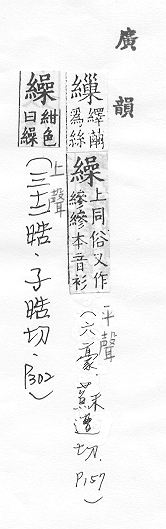 廣韻
繅繹繭為絲繰上同俗又作縿縿本音衫
平聲
(六豪．蘇遭切．P157)
繰紺色曰繰
上聲
(三十二晧．子晧切．P302)